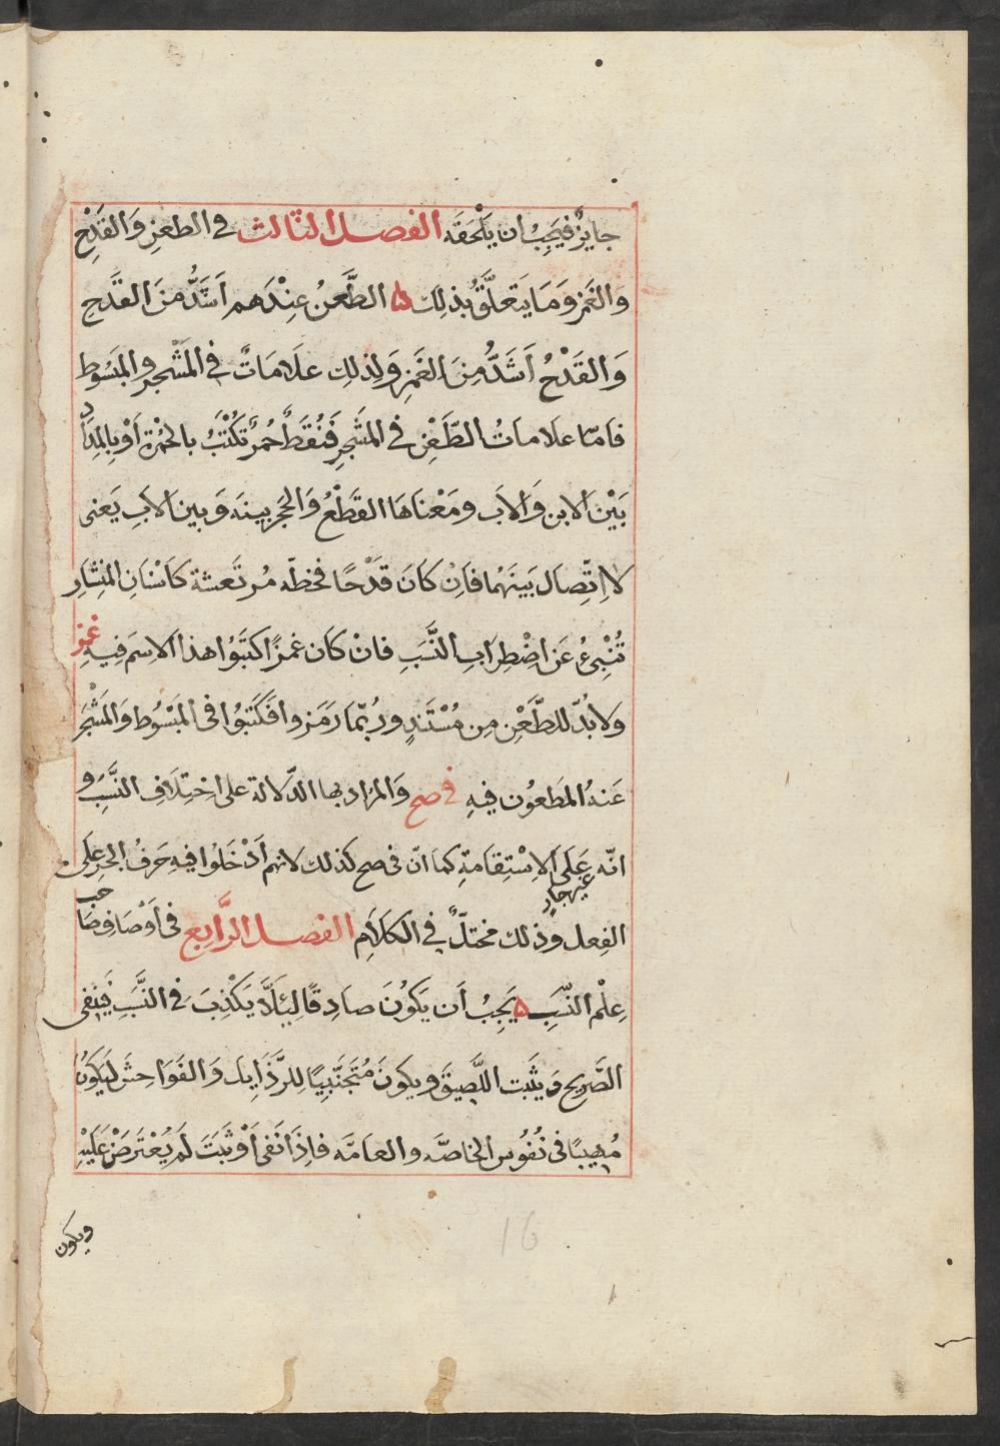 جايز فيَجِبُ ان يَلْحَقَه الفصل الثالث في الطعنِ وَالقَدْحِ
والغَمزِ وَمَا يتعلَّقُ بذلِك ۵ الطَّعنُ عِنْدَهم اَشَدُّ مِنَ القَدحِ
وَالقَدْحُ اَشَدُّ مِنَ الغَمزِ وَلِذلِك علَامَاتٌ في المشْجر والمبَسُوط
فامّا علَاماتُ الطَّعْنِ في المشَجرِ فَنُقَطٌ حُمرٌ تكْتَبُ بالحُمْرة اَوْ بالمِدَاد
بَيْنَ الابن وَالاَب ومَعْنَاهَا القَطْعُ وَالحَجر بينَه وَبين الاَبِ يَعنى
لا اِتِّصال بَينَهُما فَاِنْ كَانَ قَدْحًا فخطّه مُرتَعشة كَاَسْنَانِ المنِشَارِ
تُنْبِئُ عَن اضْطِرَابِ النَّسَبِ فانْ كَان غمزًا كتَبُوا هذا الاسِمَ فيهِ غمز
ولا بُدّ للطَّعْنِ مِن مُسْتَنَدٍ ورُبّما رَمَزوا فَكَتَبُوا فى المبَسُوط وَالمشْجَر
عَندُ المَطعوُن فيهِ في صح وَالمرَاد بها الدّلالة على اختِلَافِ النَّسَبِ و
انّه عَلَى الاِسْتِقامَةِ كما انّ فى صح كذلك لانهم اَدْخَلُوا فيهِ حَرفُ الجرِ على
غيرجارٍ
الفِعل وَذلك مختلّ في الكلَامِ الفصل الرَّابع فى اَوْصَافِ صَاحب
عِلْم النّسَبِ ۵ يَجِبُ اَن يَكوُنَ صادِقًا لِئَلَّا يَكْذِبَ في النَّسَبِ فينَفى
الصَّريح وَيثَبت اللَّصِيقَ ويكونَ مُتَجَنِّبيًا لِلرَّذَايِل وَالفَوَاحِشَ لَيَكوُنُ
مُهيبًا فى نُفوُس الخاصَّه والعامَّه فاِذَا نَفى اَوْ ثَبَتَ لَم يُعْتَرَضْ عَلَيْهِ
ويكون
16